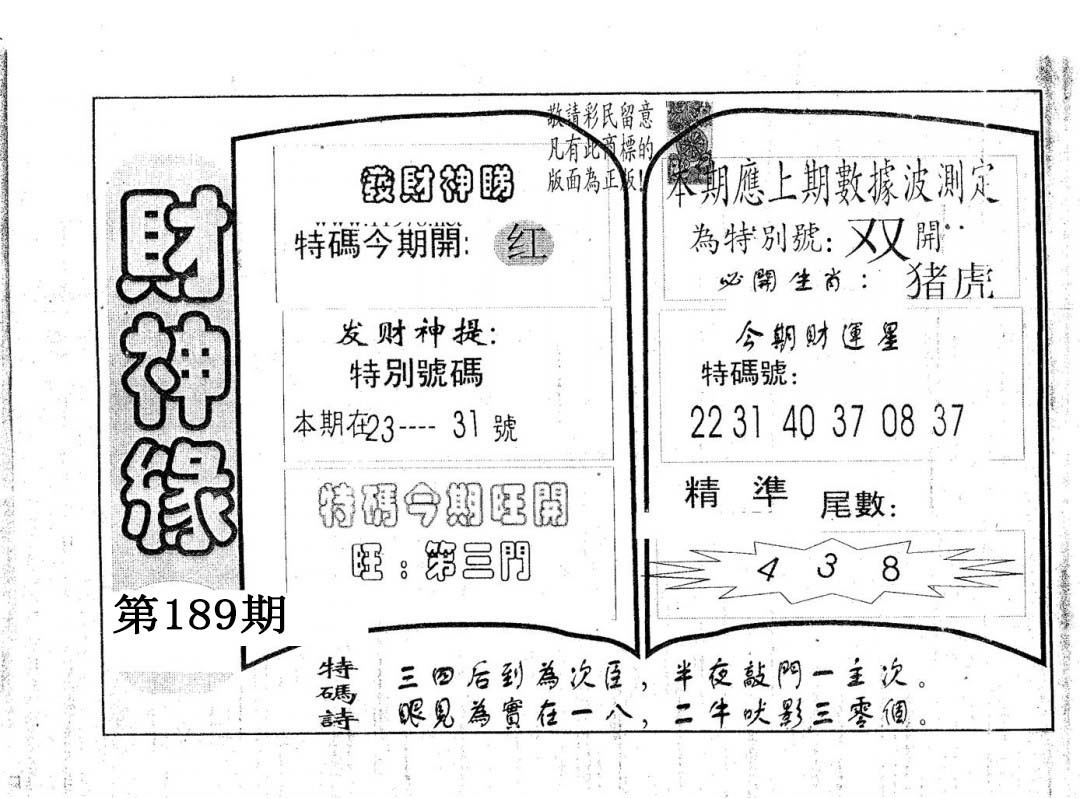 財神緣
第189期
敬請彩民留意
凡有此商標的
版面為正版!
發財神睇
特碼今期開: 红
发财神提:
特別號碼
本期在23----31號
特碼今期旺開
旺:第三門
本期應上期數據波測定
為特別號:双開
必開生肖:猪虎
今期財運星
特碼號:
22 31 40 37 08 37
精準尾數:
4 3 8
特碼詩
三四后到為次臣,半夜敲門一主次。
眼見為實在一八,二牛吠影三零個。